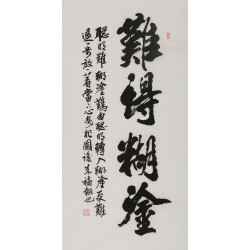 難得糊塗
聪明難糊塗難由聪明轉入糊塗反難
退一步放一著當下心安非圖後來福報也